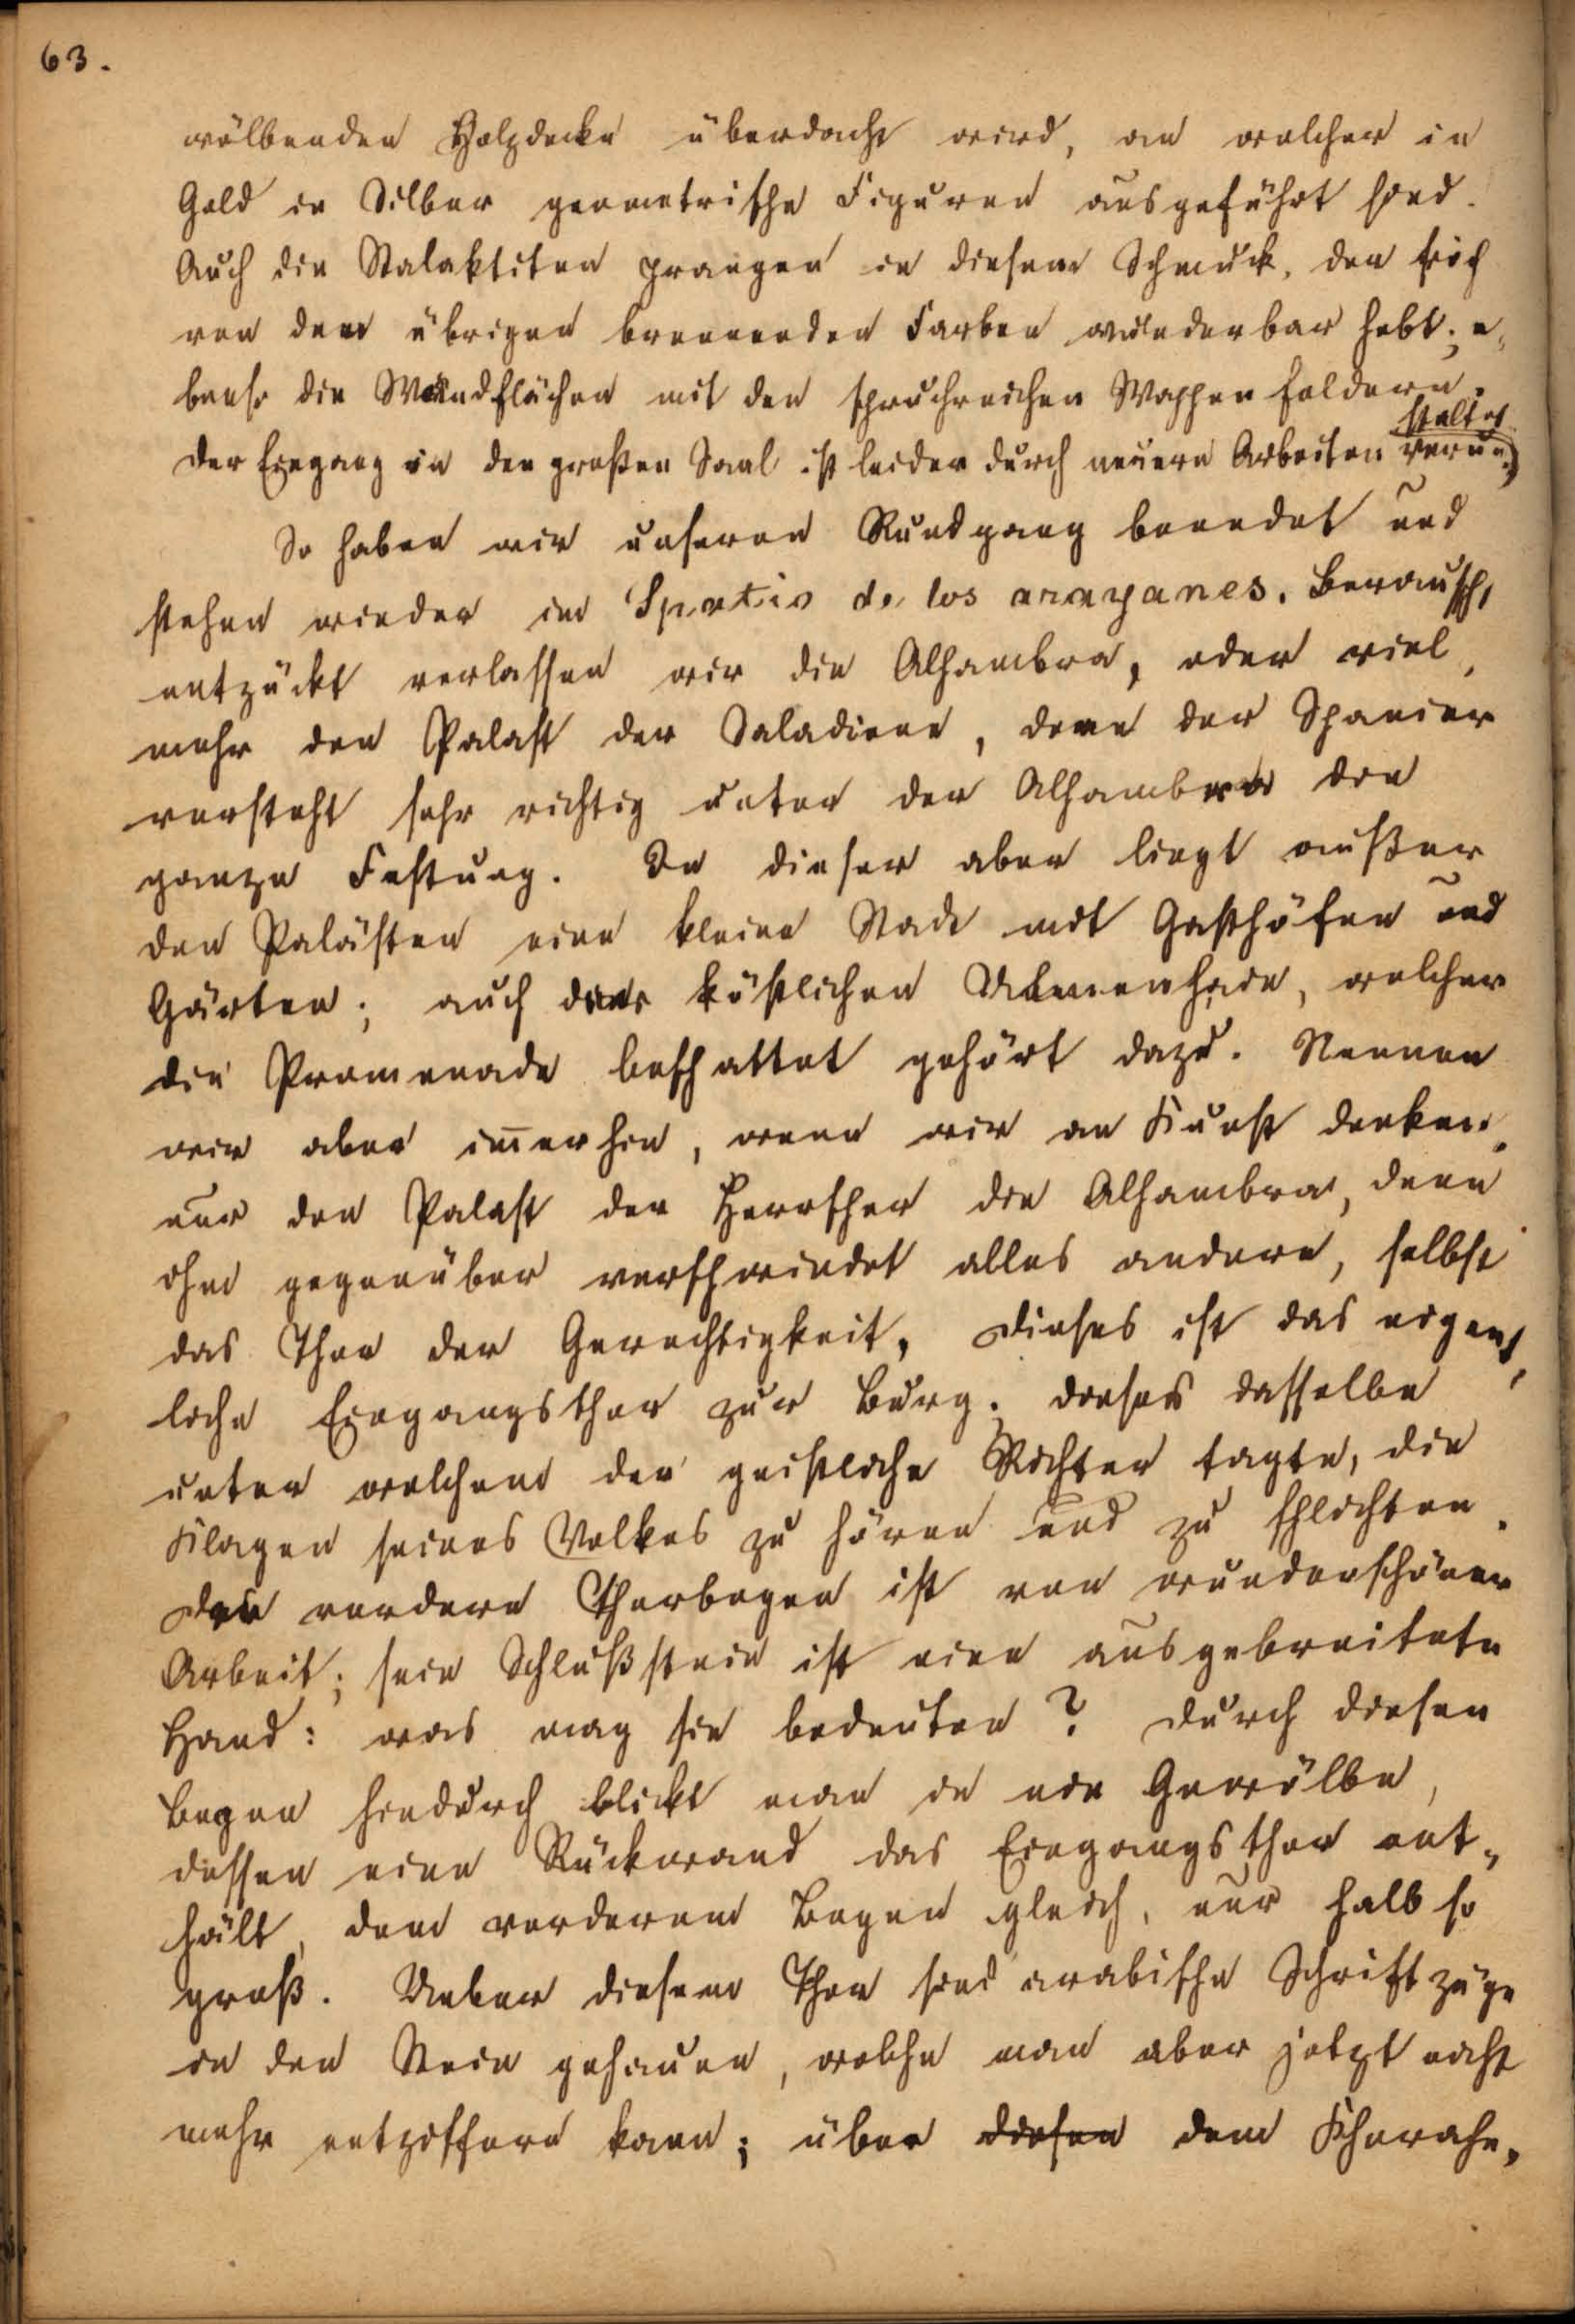 63.
wölbenden Holzdecke überdacht wird, an welcher in
Gold in Silber geometrische Figuren ausgeführt sind.
Auch die Stalaktiten prangen in diesem Schmuck, der sich
von den übrigen brennenden Farben wunderbar hebt; e-
benso die Wandflächen mit den spruchreichen Wappenfeldern.
staltet
Der Eingang in den großen Saal ist leider durch neuere Arbeiten verun-
So haben wir unseren Rundgang beendet und
stehen wieder im Spatio de los arayanes. Berauscht,
entzückt verlassen wir die Alhambra, oder viel-
mehr den Palast der Saladiene, denn der Spanier
versteht sehr richtig unter der Alhambra die
ganze Festung. In dieser aber liegt außer
den Palästen eine kleine Stadt mit Gasthöfen und
Gärten; auch der köstlichen Ulmenhain, welcher
die Promenade beschattet gehört dazu. Nennen
wir aber im̄erhin, wenn wir an Kunst denken,
nur den Palast der Herrscher die Alhambra, denn
ihm gegenüber verschwindet alles andere, selbst
das Thor der Gerechtigkeit. Dieses ist das eigent-
liche Eingangsthor zur Burg; dieses dasselbe
unter welchem der geistliche Richter tagte, die
Klagen seines Volkes zu hören und zu schlichten.
Der vordere Thorbogen ist von wunderschöner
Arbeit; sein Schlußstein ist eine ausgebreitete
Hand: was mag sie bedeuten? Durch diesen
Bogen hindurch blickt man in ein Gewölbe,
dessen eine Rückwand das Eingangsthor ent-
hält, dem vorderem Bogen gleich, nur halb so
groß. Ueber diesem Thor sind arabische Schriftzüge
in den Stein gehauen, welche man aber jetzt nicht
mehr entziffern kann; über diesen dem Thorahn-